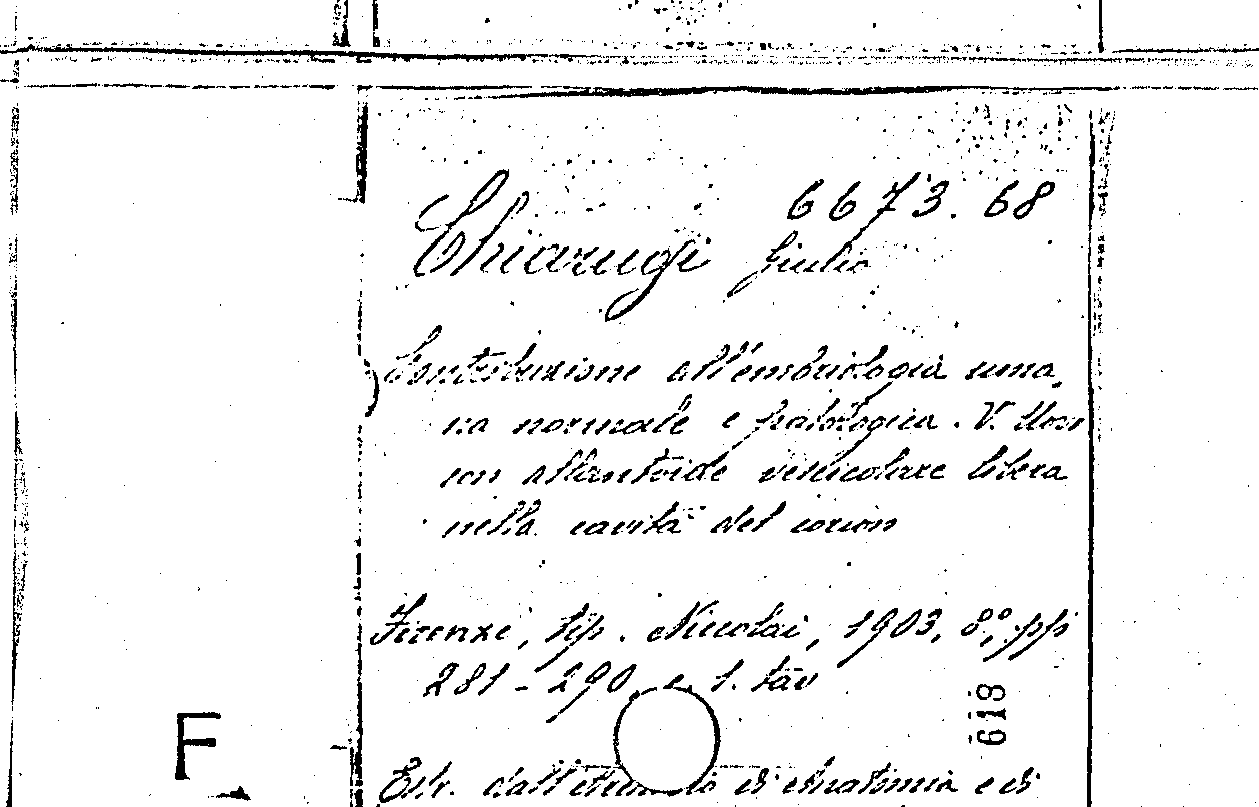 6673.68
Chiarugi Giulio
Contribuzione all'embriologia uma-
na normale e patologica. V. Uovo
con allantoide vescicolare libera
nella cavità del corion
Firenze, tip. Niccolai, 1903, 8°, pp.
281-290, e 1. tav
618
F
Estr. dall' di Anatomia e di